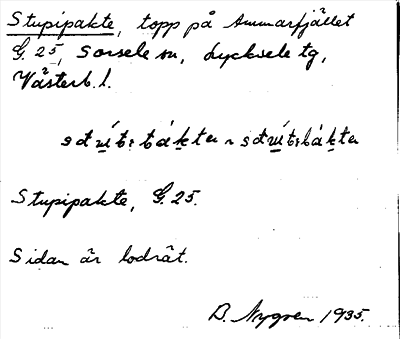 Stupipakte, topp på Ammarfjället
G. 25, Sorsele sn, Lycksele tg,
Västerb. l.
Stupipakte, G. 25.
Sidan är lodrät.
B. Nygren 1935.